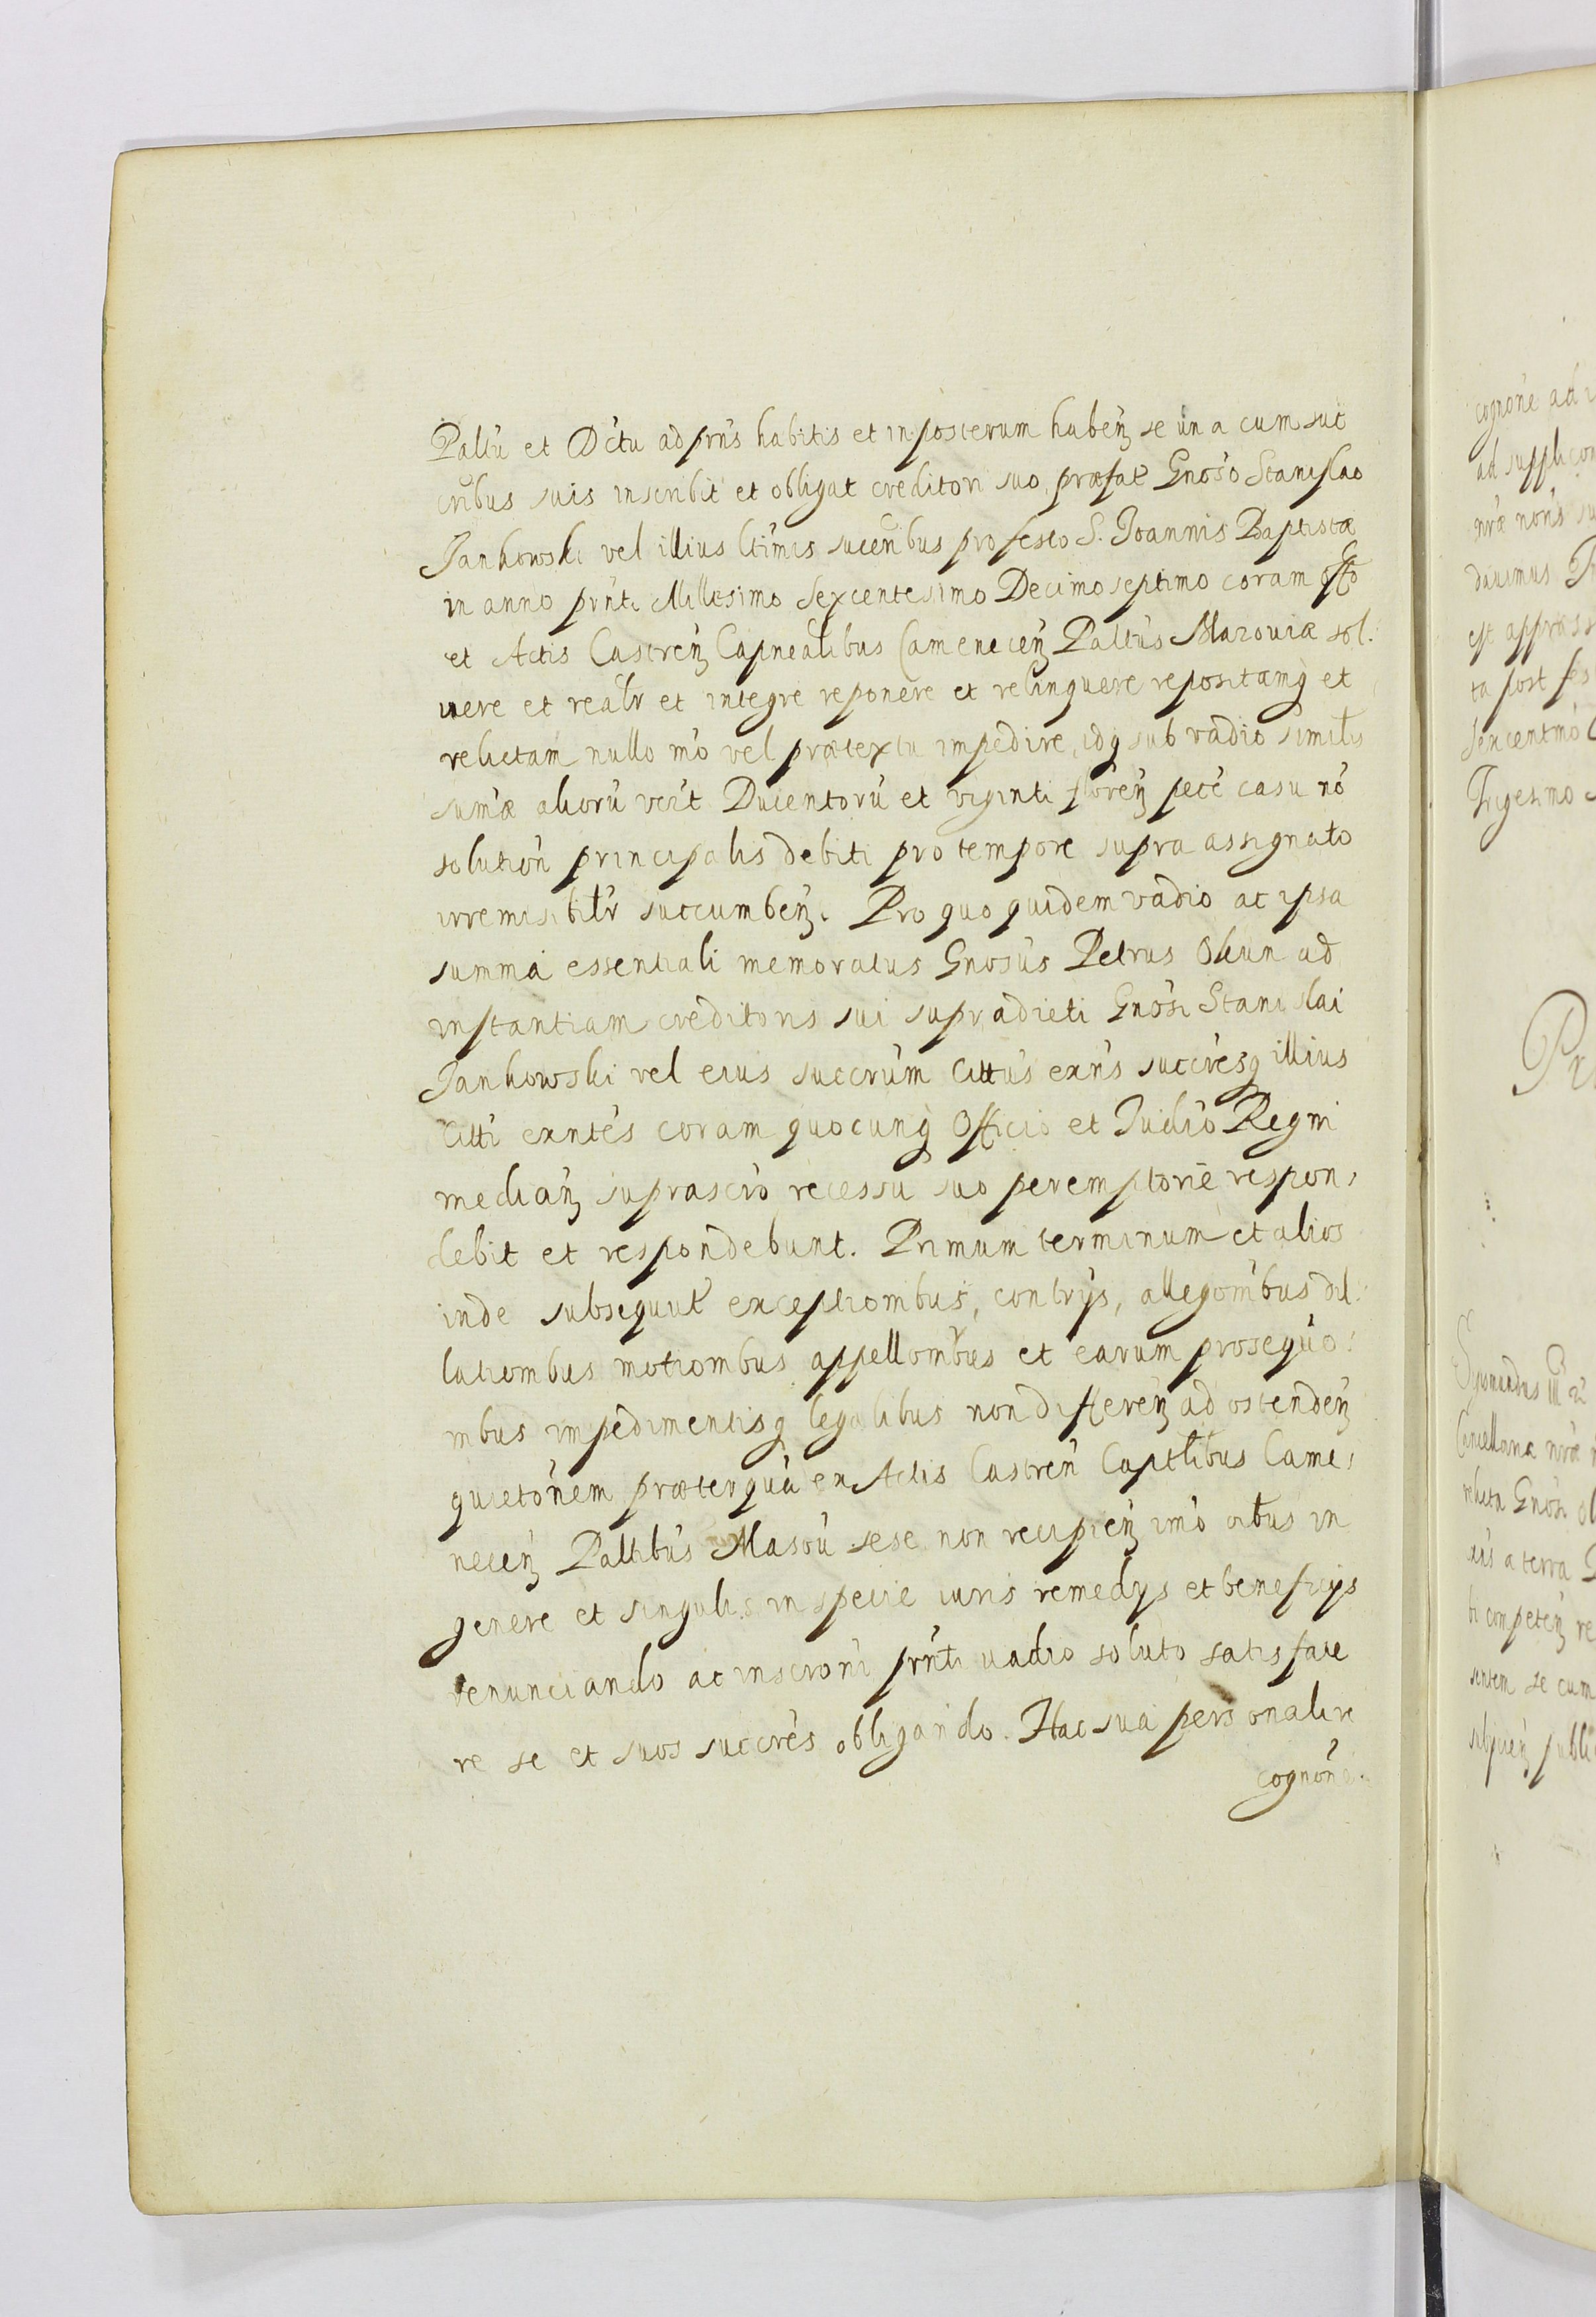 Paltū et Dctu ad prns habitis et in posterum haben se una cum suc
cribus suis inscribit et obligat creditori suo præfat Gnoso Stanislao
Jankowski vel illius ltimis sucenbus pro festo S. Joannis Baptistæ
in anno prnti Millesimo Sexcentesimo Decimo septimo coram offo
et Actis Castren Capnealibus Camenecen Paltus Mazouiæ sol.
uere et realr et integre reponere et relinquere repositamq et
relictam nullo mo vel prætextu impedire, idq sub vadio similis
sumæ aliorū verit Ducentorū et viginti floren pece casu no
solution principalis debiti pro tempore supra assignato
irremisibilr succumben. Pro quo quidem vadio ac ipsa
summa essentiali memoratus Gnosus Petrus Okun ad
instantiam creditoris sui supradicti Gnosi Stanislai
Jankowski vel eius succrum Cittus exns succresq illius
Citti exntes coram quocunq Officio et Judio Regni
median suprascro recessu suo peremptorie respon,
debit et respondebunt. Primum terminum et alios
inde subsequut exceptionibus, contrijs, allegonibus dil:
lationibus motionibus appellonibus et earum prosequo:
nibus impedimentisq legalibus non differen ad ostenden
quietonem præterquā ex Actis Castren Captlibus Came,
necen Paltibus Masou sese non recipien imo oibus in
genere et singulis in specie iuris remedijs et beneficijs
renunciando ac inscroni prnti vadio soluto satisface
re se et suos succres obligando. Hac sua personali re
cognone.
cognone ad
nræ nons su
dauimus
est appress
ta post fes
Sexcentmo
Trigesimo
Cancellaria nræ
relicta Gnosi
xis a terra
ti competen re
sentem se cum